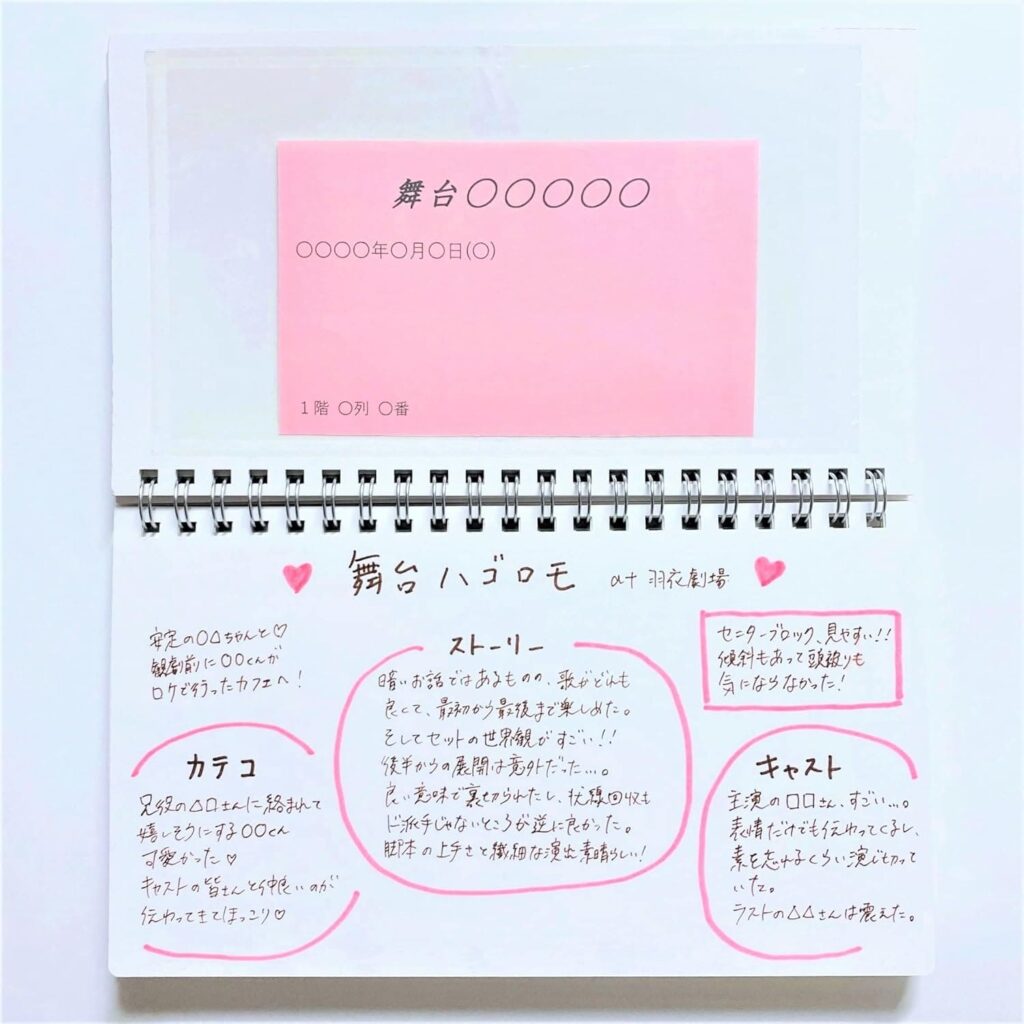 舞台〇〇〇〇〇
〇〇〇〇年〇月〇日(〇)
1階 〇列 〇番
舞台ハゴロモ at 羽衣劇場
安定の〇△ちゃんと♡
観劇前に〇〇くんが
ロケで行ったカフェへ!
センターブロック、見やすい!!
傾斜もあって頭被りも
気にならなかった!
ストーリー
暗いお話ではあるものの、歌がどれも
良くて、最初から最後まで楽しめた。
そしてセットの世界観がすごい!!
後半からの展開は意外だった…。
良い意味で裏切られたし、伏線回収も
ド派手じゃないところが逆に良かった。
脚本の上手さと繊細な演出素晴らしい!
カテコ
兄役の△□さんに絡まれて
嬉しそうにする〇〇くん
可愛かった♡
キャストの皆さんと仲良いのが
伝わってきてほっこり♡
キャスト
主演の□□さん、すごい…。
表情だけでも伝わってくるし、
素を忘れるくらい演じ切って
いた。
ラストの△△さんは震えた。